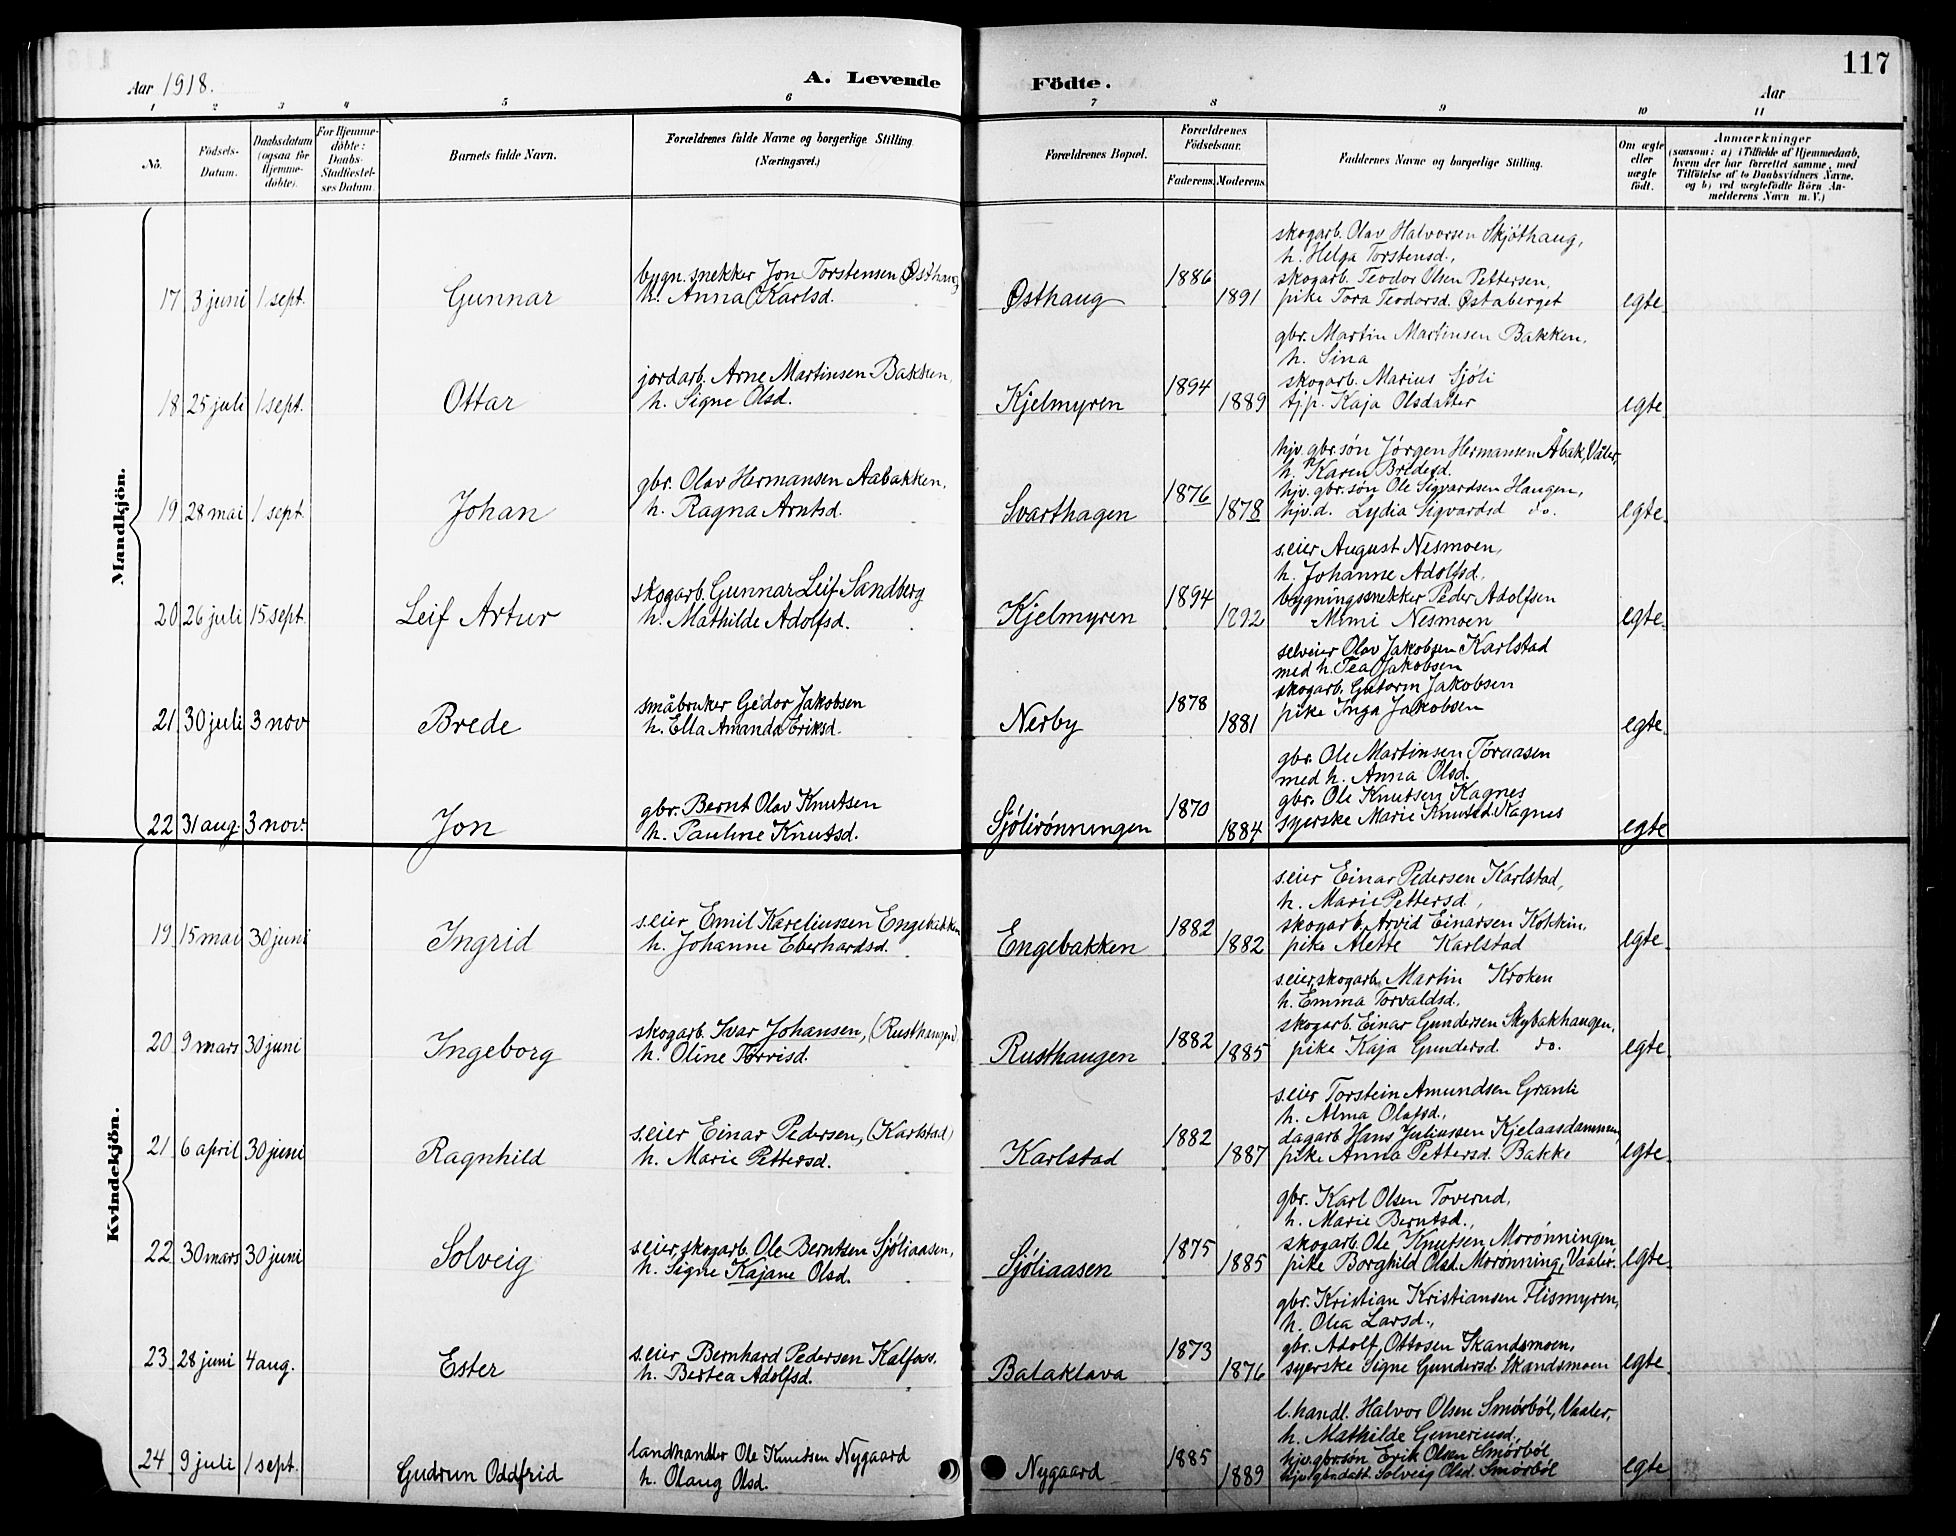 117
Aar 1918.
A. Levende Födte.
Aar
1 2 3 4 5 6 7 8 9 10 11
No.
Födsels-
Datum.
Daabsdatum
(ogsaa for
Hjemme-
døbte).
For Hjemme-
döbte:
Daabs-
Stadfæstel-
ses Datum.
Barnets fulde Navn.
Forældrenes fulde Navne og borgerlige Stilling
(Næringsvei.)
Forældrenes Bopæl.
Forældrenes
Födselsaar.
Faderens. Moderens.
Faddernes Navne og borgerlige Stilling.
Om ægte
eller
uægte
födt.
Anmærkninger
(saasom: a) i Tilfælde af Hjemmedaab,
hvem der har forrettet samme, med
Tilföielse af to Daabsvidners Navne.
og b) ved uægtefødte Börn An-
melderens Navn m. V.)
Mandkjön.
17 3 juni 1 sept. Gunnar
bygn. snekker Jon Torstensen Østhaug
h. Anna Karlsd.
Østhaug 1886 1891
skogarb. Olav Halvorsen Skjøthaug,
h. Helga Torstensd.,
skogarb. Teodor Olsen Pettersen,
pike Tora Teodorsd. Østaberget
egte
18 25 juli 1 sept. Ottar
jordarb. Arne Martinsen Bakken,
h. Signe Olsd.
Kjelmyren 1894 1889
gbr. Martin Martinsen Bakken,
h. Sina
skogarb. Marius Sjøli
tjp. Kaja Olsdatter
egte
19 28 mai 1 sept. Johan
gbr. Olav Hermansen Aabakken,
h. Ragna Arntsd.
Svarthagen 1876 1878
hjv. gbr.søn Jørgen Hermansen Åbak, Våler,
h. Karen Bredesd.
hjv. gbr.søn Ole Sigvardsen Haugen,
hjv.d. Lydia Sigvardsd do.
egte
20 26 juli 15 sept. Leif Artur
skogarb. Gunnar Leif Sandberg
h. Mathilde Adolfsd.
Kjelmyren 1894 1892
s.eier August Nesmoen,
h. Johanne Adolfsd.
bygningssnekker Peder Adolfsen
Mimi Nesmoen
egte
21 30 juli 3 nov Brede
småbruker Gedor Jakobsen
h. Ella Amanda Eriksd.
Nerby 1878 1881
selveier Olav Jakobsen Karlstad
med h. Tea Jakobsen
skogarb. Guttorm Jakobsen
pike Inga Jakobsen
egte
22 31 aug. 3 nov. Jon
gbr. Bernt Olav Knutsen
h. Pauline Knutsd.
Sjölirönningen 1870 1884
gbr. Ole Martinsen Toraasen
med h. Anna Olsd.
gbr. Ole Knutsen Kagnes
syerske Marie Knutsd. Kagnes
egte
Kvindekjön.
19 15 mai 30 juni Ingrid
s.eier Emil Kareliussen Engebakken
h. Johanne Eberhardsd.
Engebakken 1882 1882
s.eier Einar Pedersen Karlstad,
h. Marie Pettersd,
skogarb. Arvid Einarsen Kokkin.
pike Alette Karlstad
egte
20 9 mars 30 juni Ingeborg
skogarb. Ivar Johansen, (Rusthaugen)
h. Oline Torrisd.
Rusthaugen 1882 1885
s.eier, skogarb. Martin Kroken
h. Emma Torvaldsd.
skogarb. Einar Gundersen Skybakhaugen,
pike Kaja Gundersd. do.
egte
21 6 april 30 juni Ragnhild
s.eier Einar Pedersen, (Karlstad)
h. Marie Pettersd.
Karlstad 1882 1887
s.eier Torstein Amundsen Granli
h. Alma Olafsd.,
dagarb. Hans Juliussen Kjelaasdammen,
pike Anna Pettersd. Bakke
egte
22 30 mars 30 juni Solveig
s.eier, skogarb. Ole Berntsen Sjöliaasen,
h. Signe Kajane Olsd.
Sjöliaasen 1875 1885
gbr. Karl Olsen Toverud,
h. Marie Berntsd.,
skogarb. Ole Knutsen Morønningen
pike Borghild Olsd. Morønning, Vaaler.
egte
23 28 juni 4 aug. Ester
s.eier Bernhard Pedersen Kalfoss.
h. Bertea Adolfsd.
Balaklava 1873 1876
gbr. Kristian Kristiansen Flismyren,
h. Olea Larsd.,
gbr. Adolf Ottosen Skandsmoen,
syerske Signe Gundersd Skandsmoen
egte
24 9 juli 1 sept. Gudrun Oddfrid
landhandler Ole Knudsen Nygaard
h. Olaug Olsd.
Nygaard 1885 1889
l.handl. Halvor Olsen Smörböl, Vaaler,
h. Mathilde Gumeriusd,
hjv. gbr.søn Erik Olsen Smörböl
hjv. gbr.datt Solveig Olsd. Smörböl
egte